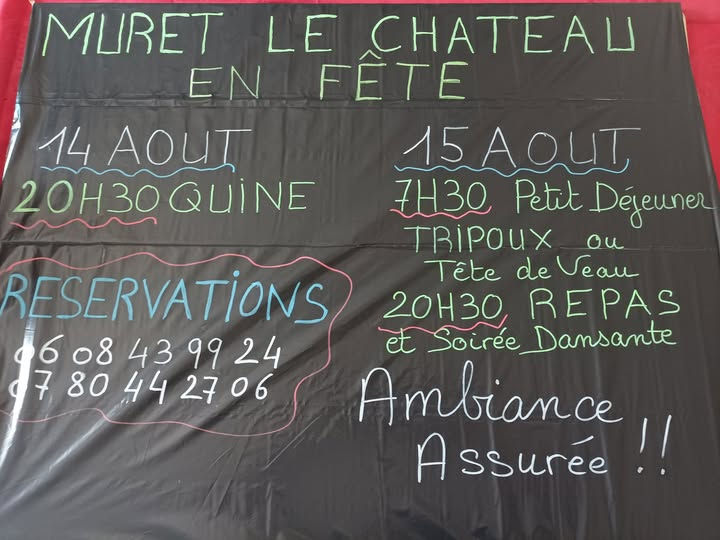 MURET LE CHATEAU
EN FÊTE
14 AOUT
20H30 QUINE
RESERVATIONS
06 08 43 99 24
07 80 44 27 06
15 AOUT
7H30 Petit Déjeuner
TRIPOUX ou
Tête de Veau
20H30 REPAS
et Soirée Dansante
Ambiance
Assurée !!